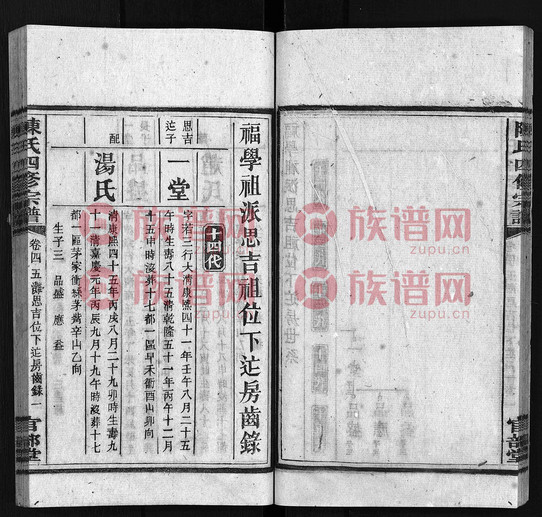 陳氏四修宗譜
官部堂
福學祖派思吉祖位下迮房齒錄
十四代
思吉
迮子
一堂
字若三行大清康熙四十一年壬午八月二十五
午時生壽八十五清乾隆五十一年丙午十二月
十五申時沒葬十七都一區早禾衝酉山卯向
配
湯氏
清康熙四十五年丙戌八月二十九卯時生壽九
十一清嘉慶元年丙辰九月十九午時沒葬十七
都一區茅家衝
辛山乙向
生子三
品盛
應
陳氏四修宗譜
卷四
五
思吉位下迮房齒錄
一
官部堂
族谱网
zupu.cn
族谱网
zupu.cn
族谱网
zupu.cn
族谱网
zupu.cn